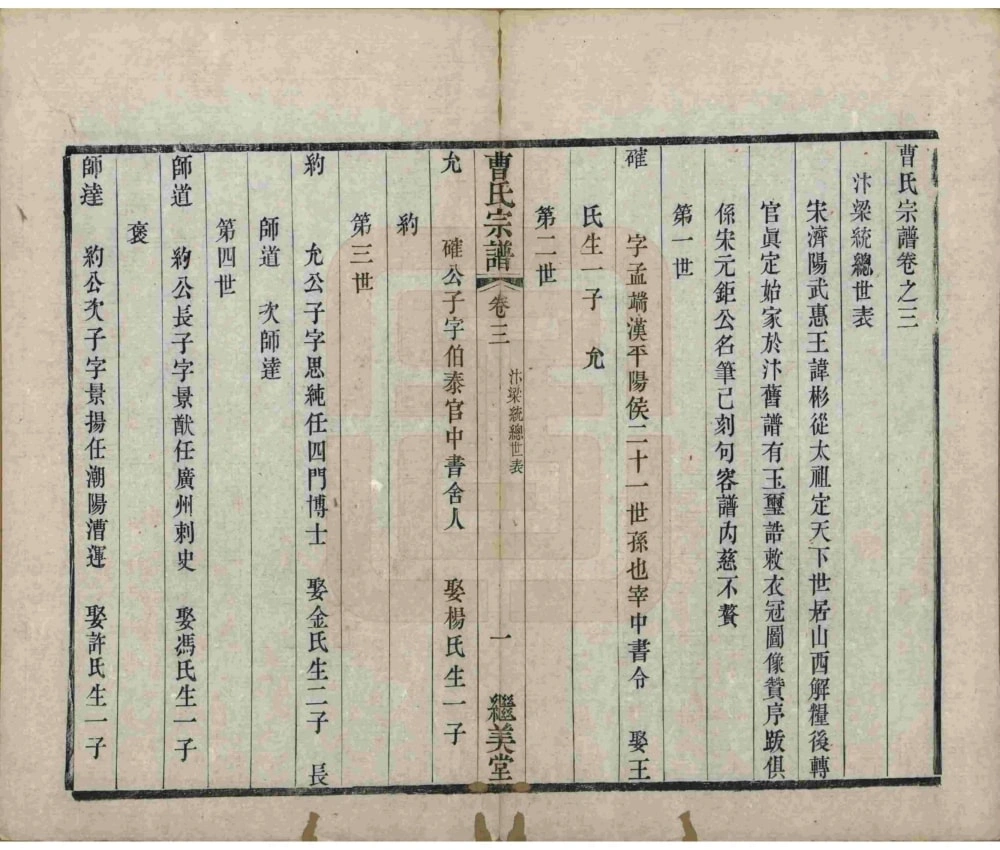 曹氏宗譜卷之三
汴梁統總世表
宋濟陽武惠王諱彬從太祖定天下世居山西解糧後轉
官眞定始家於汴舊譜有玉璽誥敕衣冠圖像贊序跋俱
係宋元鉅公名筆已刻句容譜內慈不贅
第一世
確　字孟端漢平陽侯二十一世孫也宰中書令　娶王
氏生一子　允
第二世
曹氏宗譜　卷三　汴梁統總世表　一　繼美堂
允　確公子字伯泰官中書舍人　娶楊氏生一子
約
第三世
約　允公子字思純任四門博士　娶金氏生二子　長
師道　次師達
第四世
師道　約公長子字景猷任廣州刺史　娶馮氏生一子
褒
師達　約公次子字景揚任潮陽漕運　娶許氏生一子